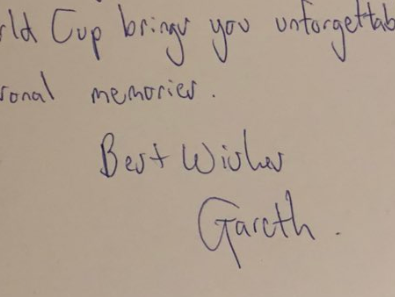 rld Cup brings you unforgettab
sonal memories.
Best Wishes
Gareth.